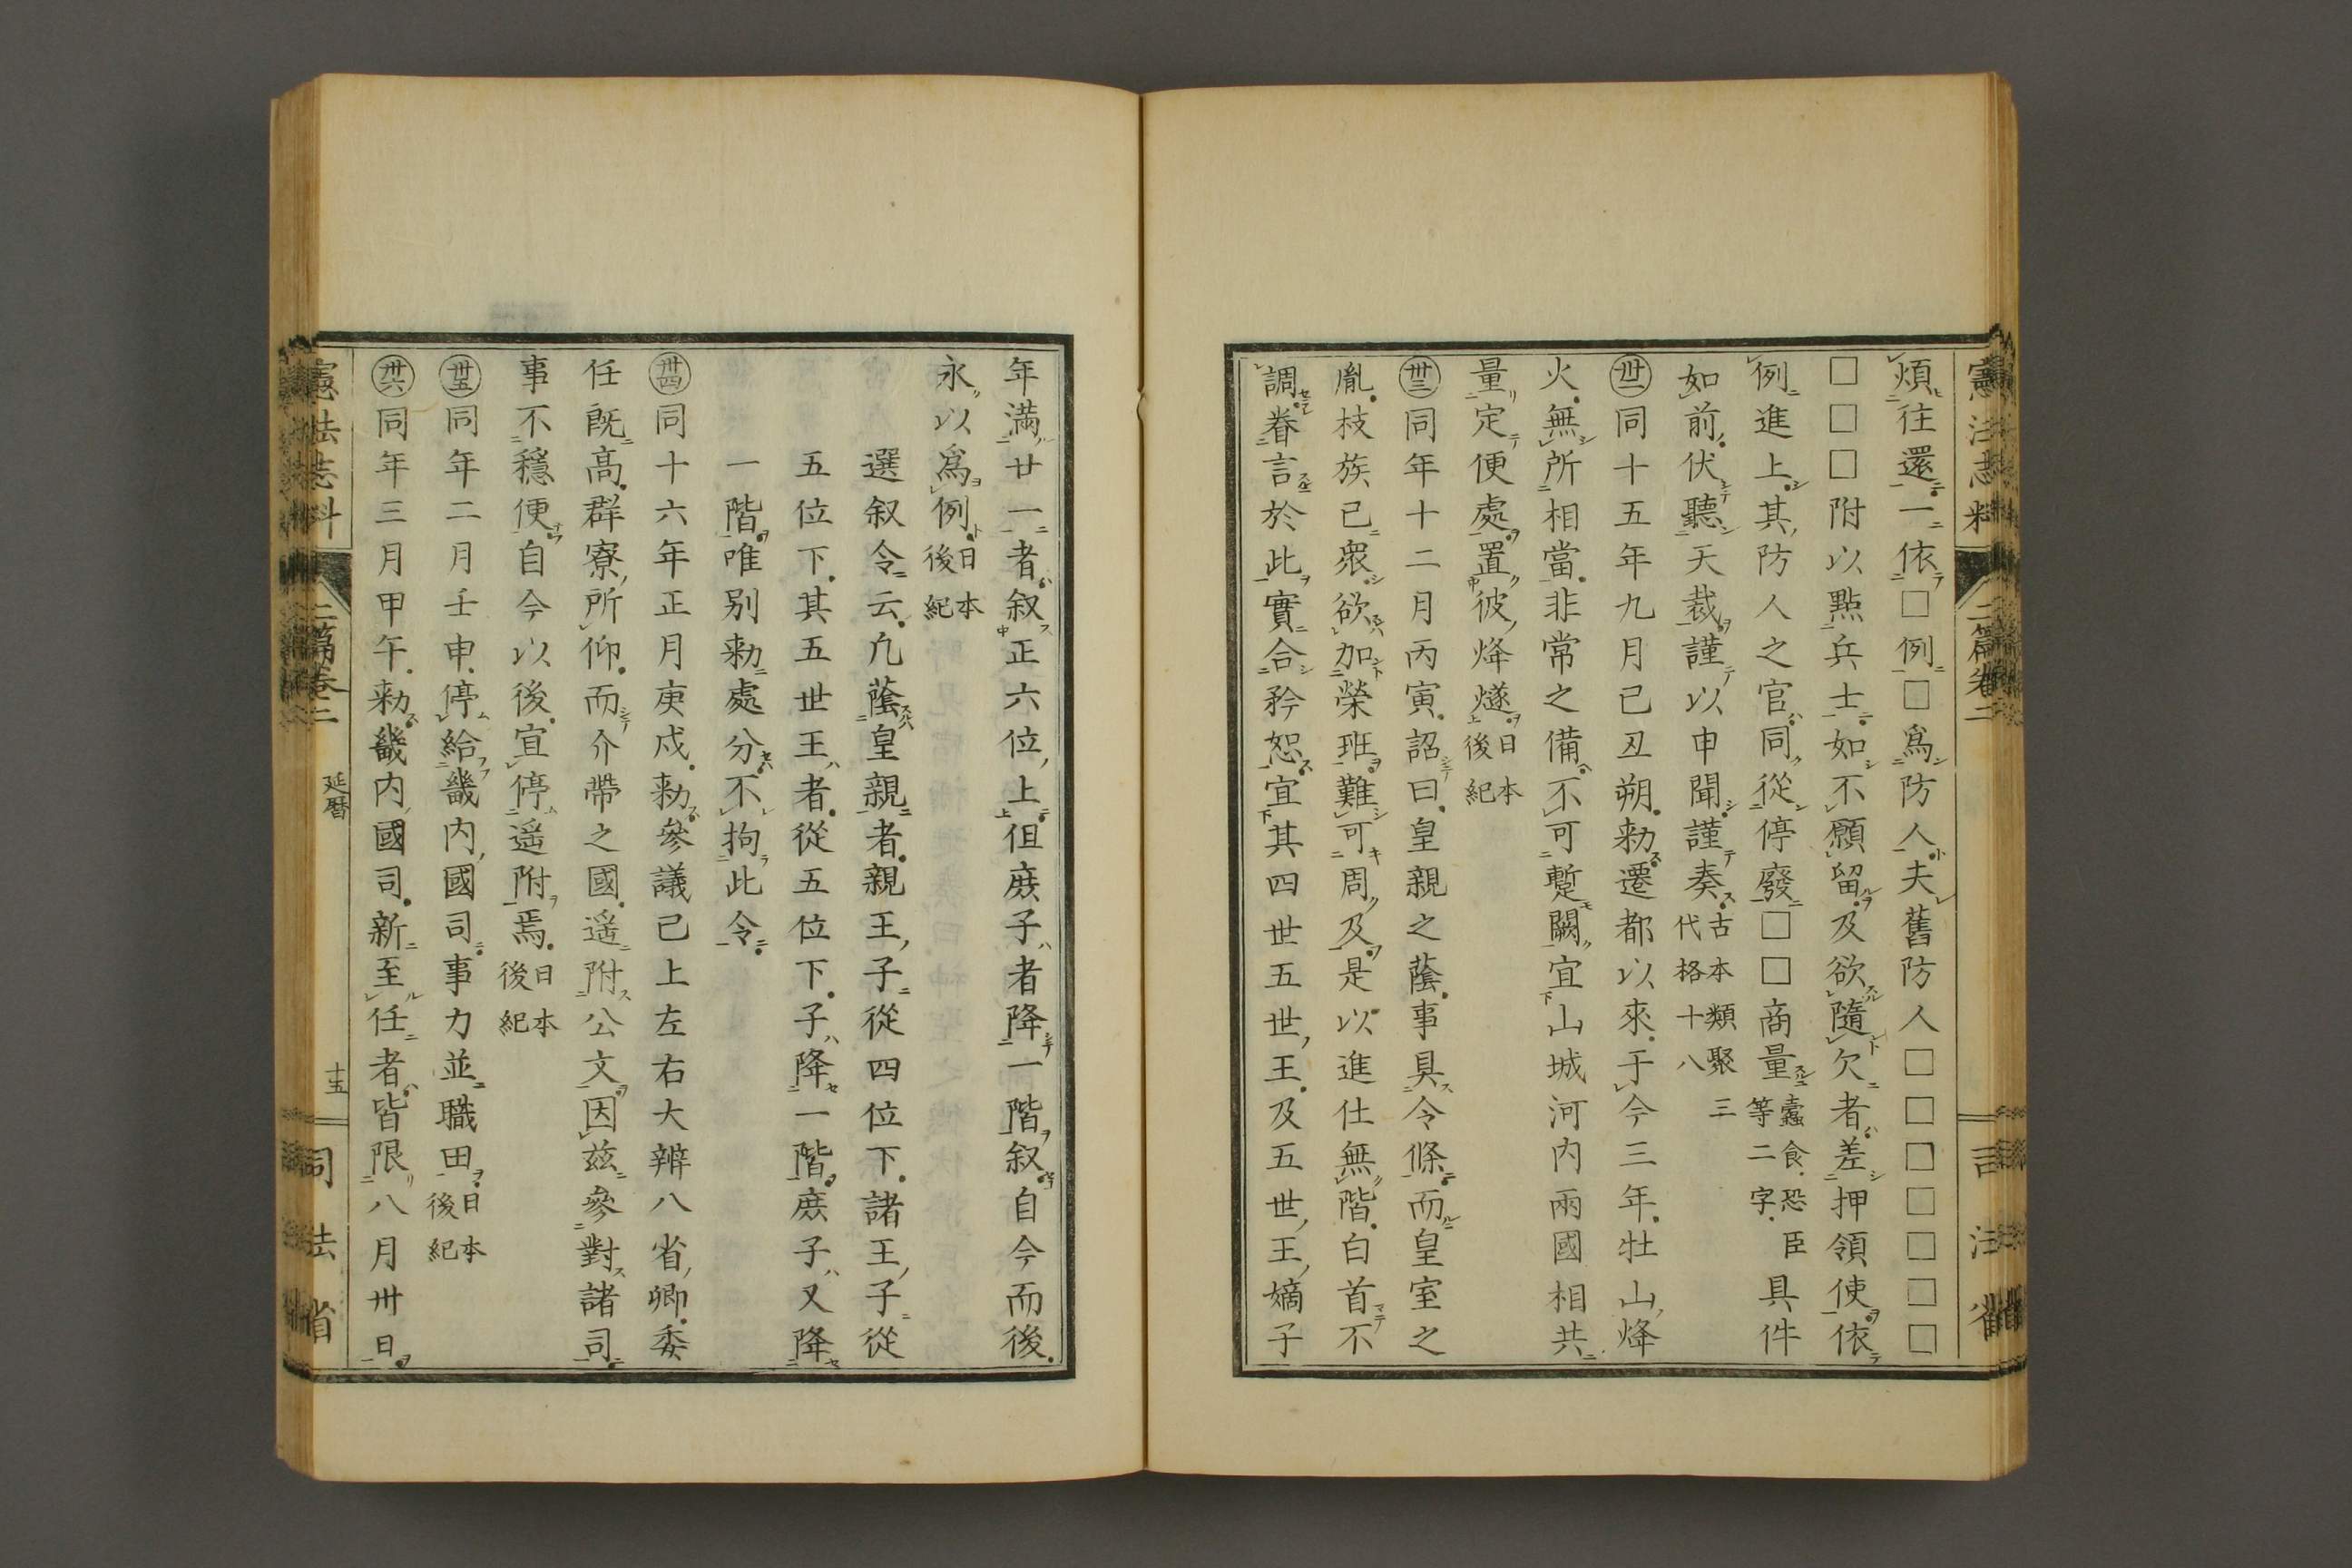 憲法志料 二篇卷二 司法省
煩往還一依□例□爲防人夫舊防人□□□□□□□
□□□附以點兵士如不願留及欲隨欠者差押領使依
例進上其防人之官同從停廢□□商量蠹食恐臣等二字具件
如前伏聽天裁謹以申聞謹奏古本類聚三代格十八
㊁同十五年九月己丑朔勅遷都以來于今三年牡山烽
火無所相當非常之備不可蹔闕宜山城河内兩國相共
量定便處置彼烽燧日本後紀
同年十二月丙寅詔曰皇親之蔭事具令條而皇室之
胤枝族已衆欲加榮班難可周及是以進仕無階白首不
調眷言於此實合矜恕宜其四世五世王及五世王嫡子
年滿廿一者叙正六位上但庶子者降一階叙自今而後
永以爲例日本後紀
選叙令云凡蔭皇親者親王子從四位下諸王子從
五位下其五世王者從五位下子降一階庶子又降
一階唯別勅處分不拘此令
同十六年正月庚戌勅參議已上左右大辨八省卿委
任既高群寮所仰而介帶之國遥附公文因茲參對諸司
事不穩便自今以後宜停遥附焉日本後紀
同年二月壬申停給畿内國司事力並職田日本後紀
同年三月甲午勅畿内國司新至任者皆限八月卅日
憲法志料 二篇卷二 延暦 十五 司法省